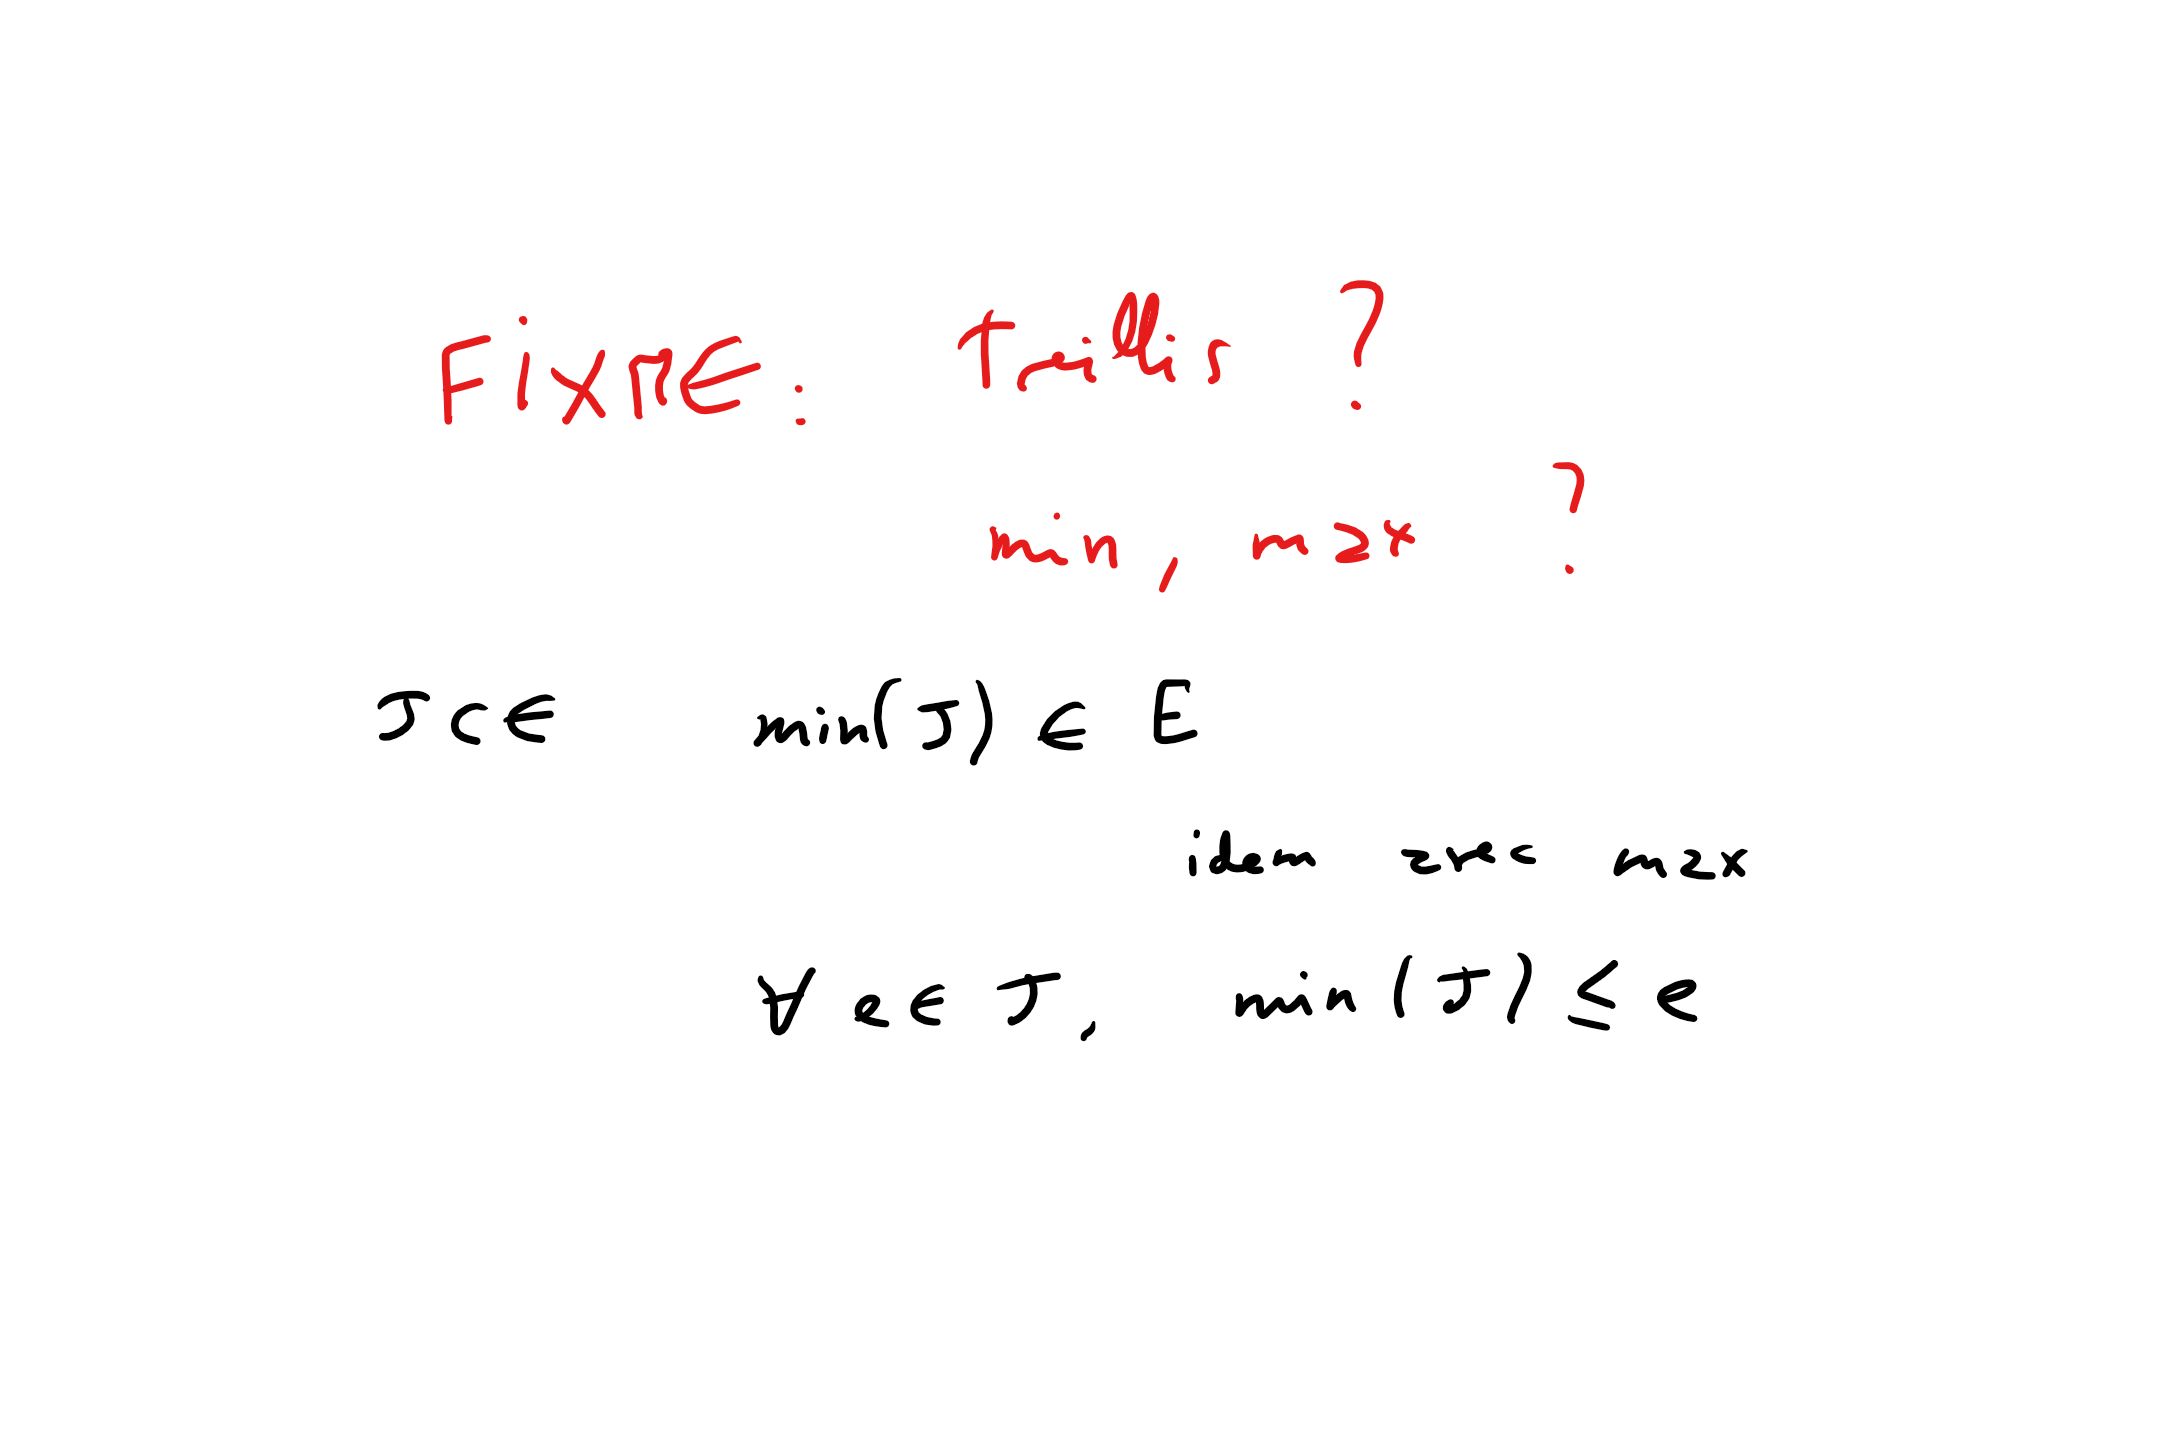 FiXME: Treillis ?
min, max ?
J ⊂ E min(J) ∈ E
idem avec max
∀ e ∈ J, min(J) ≤ e